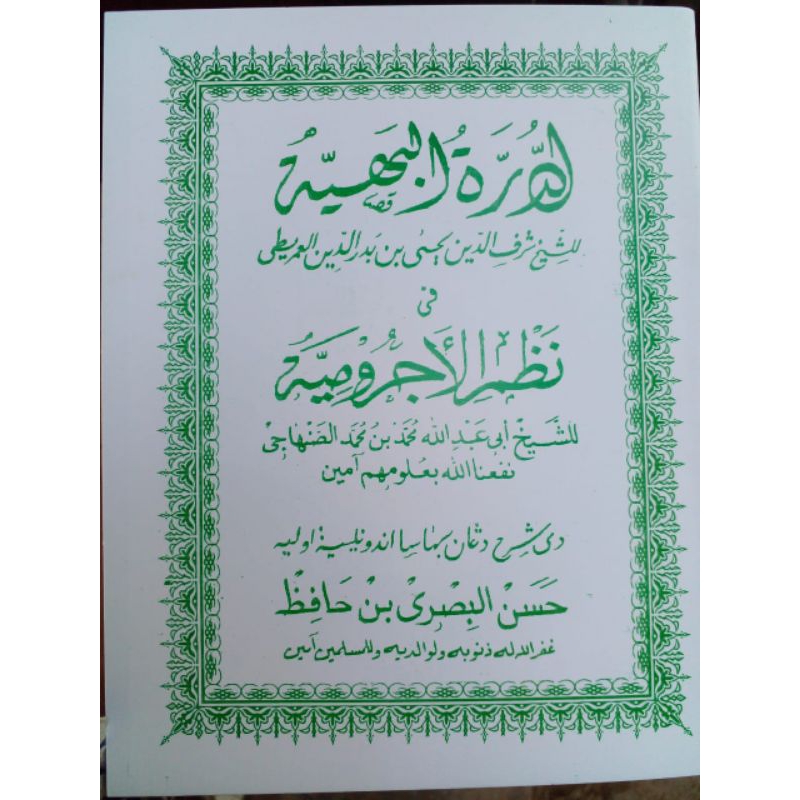 الدُّرَّةُ الْبَهِيَّةُ
للشيخ شرف الدين يحيى بن بدر الدين العمريطي
في
نَظْمِ الْأَجُرُومِيَّةِ
للشيخ أبي عبد الله محمد بن محمد الصنهاجي
نفعنا الله بعلومهم آمين
دي شرح دڠان بهاسا اندونيسية اوليه
حَسَنُ الْبِصْرِيْ بِنْ حَافِظْ
غفر الله له ذنوبه ولوالديه وللمسلمين آمين